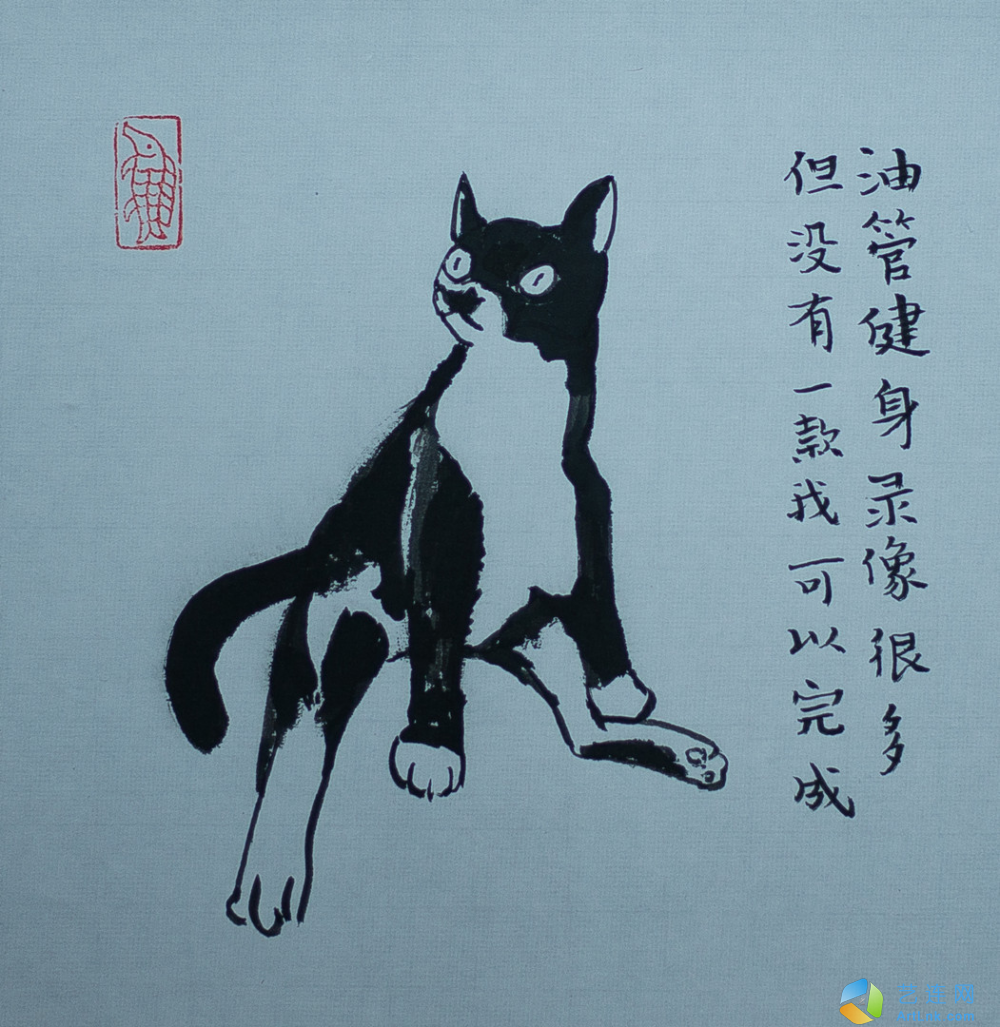 油管健身录像很多
但没有一款我可以完成